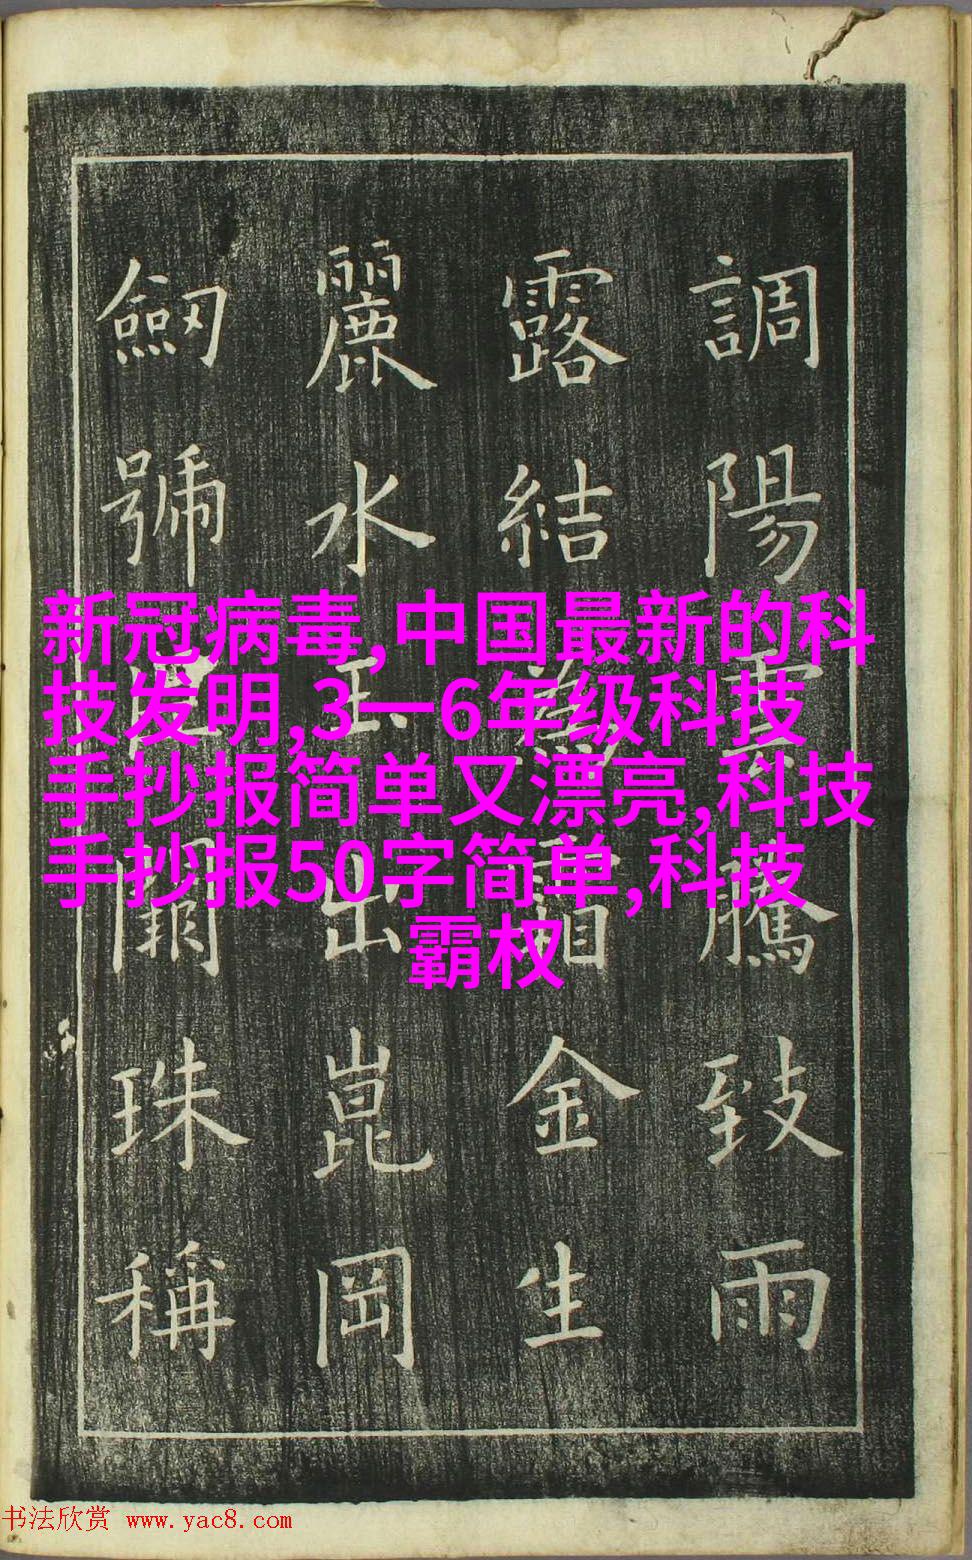 調陽雲騰致雨
露結為霜金生
麗水玉出崑岡
劒號巨闕珠稱
新冠病毒,中国最新的科
技发明,3一6年级科技
手抄报简单又漂亮,科技
手抄报50字简单,科技
霸权
书法欣赏 www.yac8.com